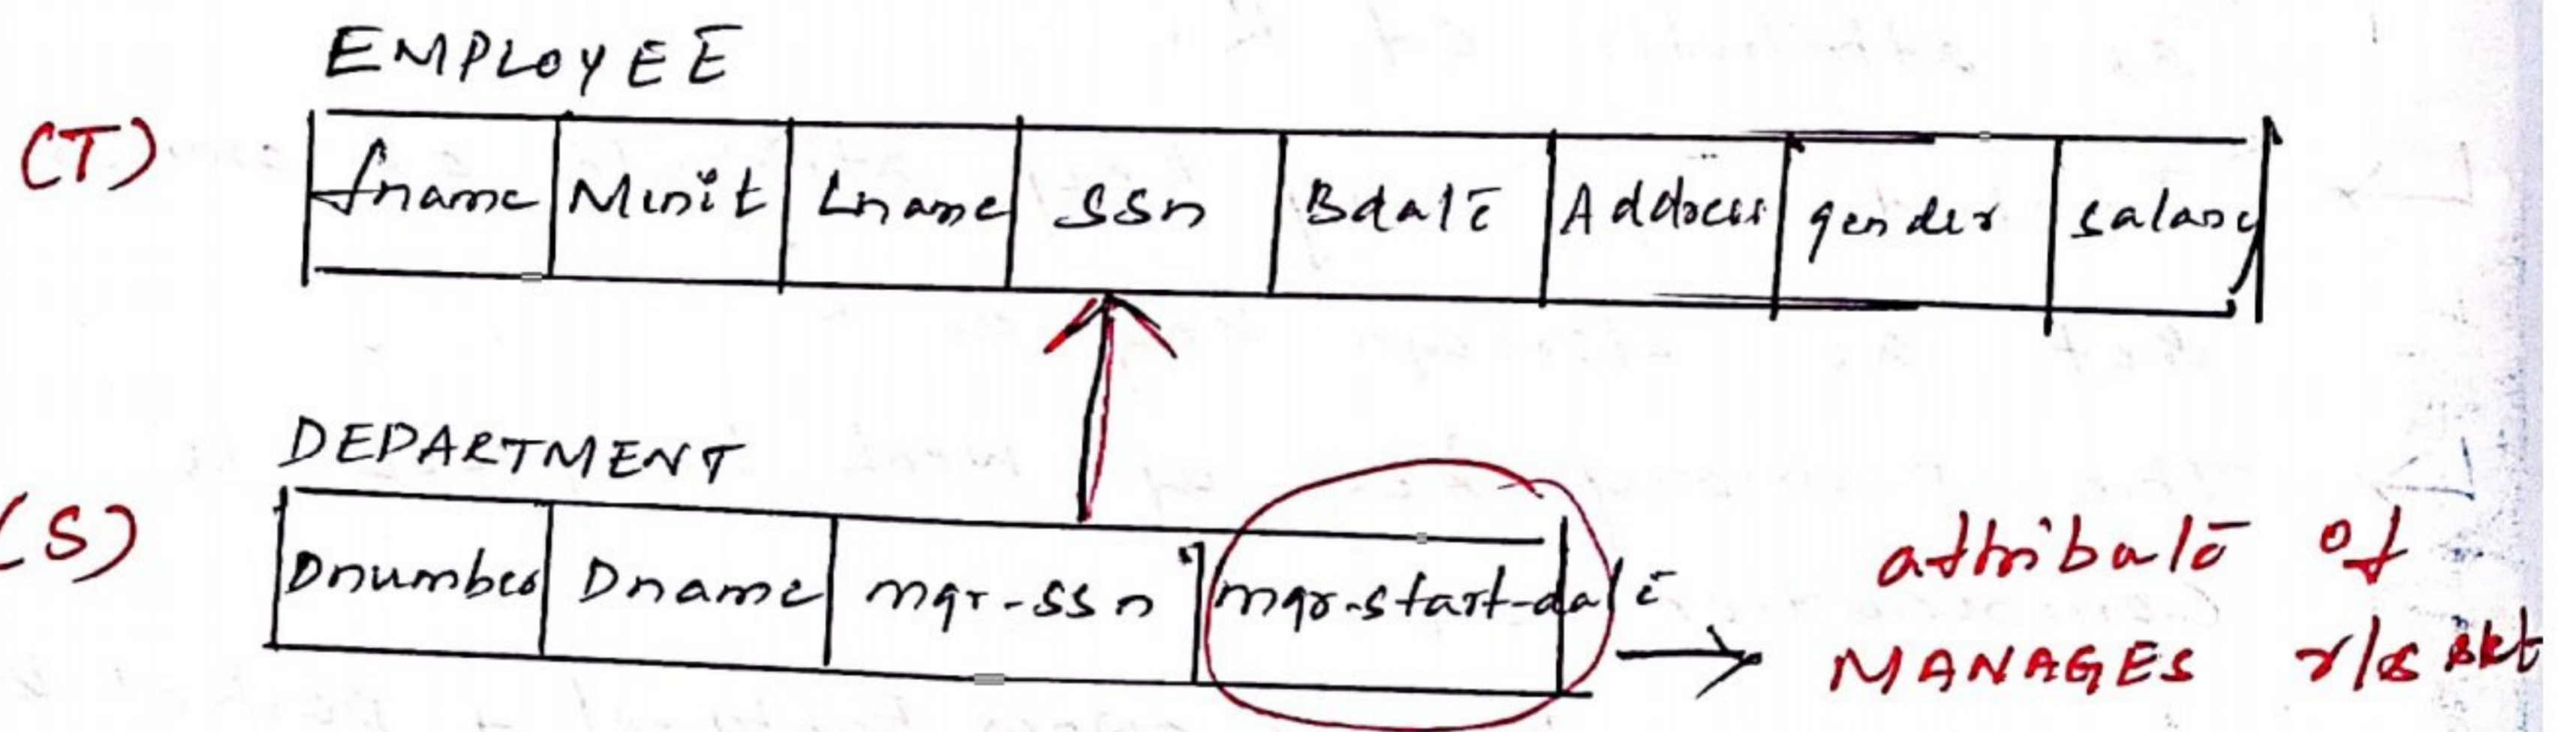 EMPLOYEE
(T) fname Minit Lname ssn Bdate Address gender salary
DEPARTMENT
(S) Dnumber Dname mgr-ssn mgr-start-date
attribute of
MANAGES r/s set